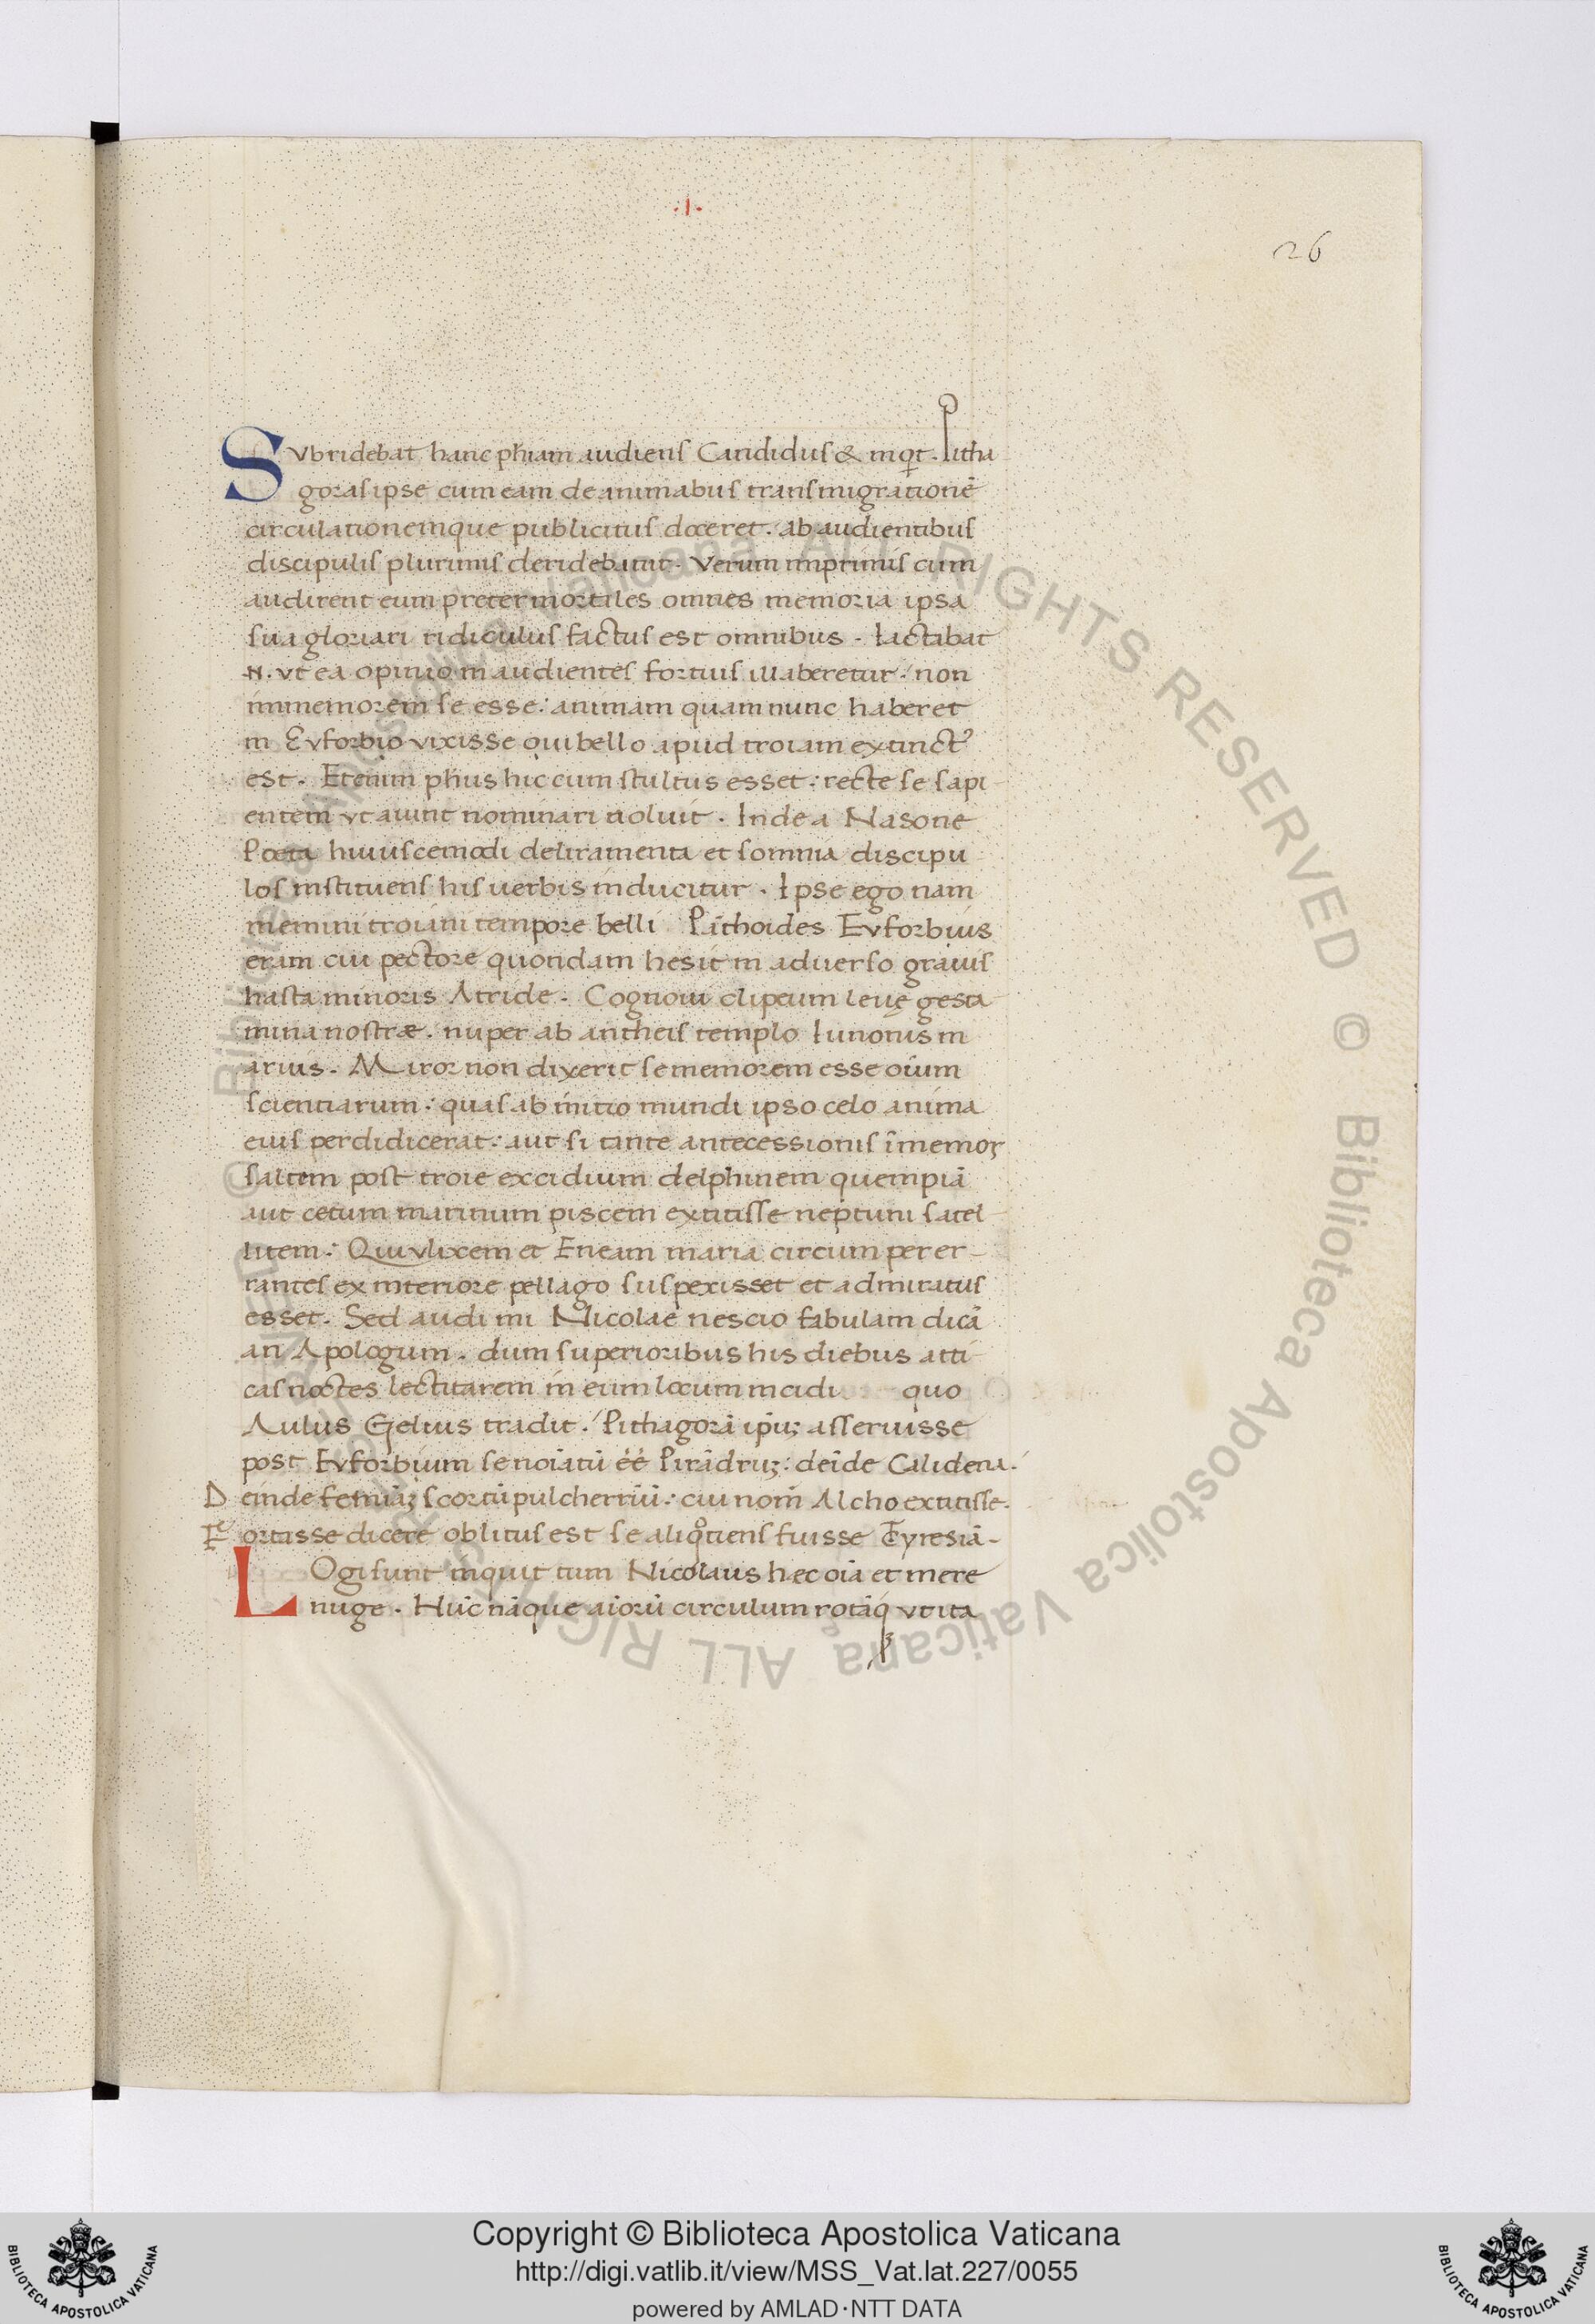 .I.
26
SVbridebat hanc phiam audiens Candidus & inqt. Pitha
goras ipse cum eam de animabus transmigrationē
circulationemque publicitus doceret. ab audientibus
discipulis plurimis deridebatur. Verum inprimis cum
audirent eum preter mortales omnes memoria ipsa
sua gloriari ridiculus factus est omnibus. Iactabat
.N. vt ea opinio in audientes fortius illaberetur: non
immemorem se esse: animam quam nunc haberet
in Evforbio vixisse qui bello apud troiam extinct᾽
est. Etenim phus hic cum stultus esset: recte se sapi
entem vt aiunt nominari noluit. Inde a Nasone
Poeta huiuscemodi deliramenta et somnia discipu
los instituens his uerbis inducitur. Ipse ego nam
memini troiani tempore belli Pāthoides Evforbius
eram cui pectore quondam hesit in aduerso grauis
hasta minoris Atride. Cognoui clipeum leuę gesta
mina nostræ. nuper ab antheis templo Iunonis in
arius. Miror non dixerit se memorem esse oīum
scientiarum: quas ab initio mundi ipso celo anima
eius perdidicerat: aut si tante antecessionis īmemor
saltem post troie excidium delphinem quempiā
aut cetum marinum piscem extitisse neptuni satel
litem: Qui vlixem et Eneam maria circum perer-
rantes ex interiore pellago suspexisset et admiratus
esset. Sed audi mi Nicolae nescio fabulam dicā
an Apologum. dum superioribus his diebus atti
cas noctes lectitarem in eum locum incidi quo
Aulus Gelius tradit. Pithagorā ip̄uꝫ asseruisse
post Evforbium se noīatū eē Pirādruꝫ: deīde Calidena.
Deinde feminaꝫ scortū pulcherriū: cui nom̄ Alcho extitisse.
Fortasse dicere oblitus est se aliqotiens fuisse Tyresiā-
LOgi sunt inquit tum Nicolaus hec oīa et mere
nuge. Hūc nāque aīorū circulum rotāq́ vt ita
Copyright © Biblioteca Apostolica Vaticana
http://digi.vatlib.it/view/MSS_Vat.lat.227/0055
powered by AMLAD·NTT DATA